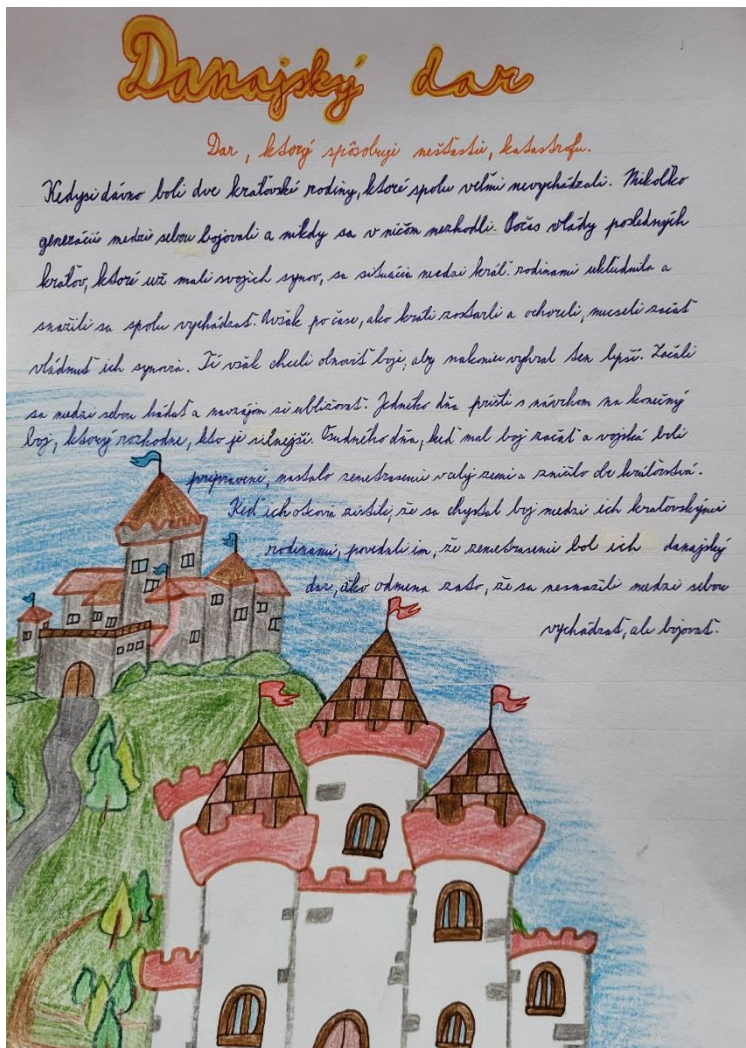 Danajský dar
Dar, ktorý spôsobuje nešťastie, katastrofu.
Kedysi dávno boli dve kráľovské rodiny, ktoré spolu veľmi nevychádzali. Niekoľko
generácií medzi sebou bojovali a nikdy sa v ničom nezhodli. Počas vlády posledných
kráľov, ktoré už mali svojich synov, sa situácia medzi kráľ. rodinami ukľudnila a
snažili sa spolu vychádzať. Avšak po čase, ako králi zostarli a ochoreli, museli začať
vládnuť ich synovia. Tí však chceli obnoviť boje, aby nakoniec vyhral ten lepší. Začali
sa medzi sebou hádať a navzájom si ubližovať. Jedného dňa prišli s návrhom na konečný
boj, ktorý rozhodne, kto je silnejší. Osudného dňa, keď mal boj začať a vojská boli
pripravení, nastalo zemetrasenie v celej zemi a zničilo obe kráľovstvá.
Keď ich otcovia zistili, že sa chystal boj medzi ich kráľovskými
rodinami, povedali im, že zemetrasenie bol ich danajský
dar, ako odmena zato, že sa nesnažili medzi sebou
vychádzať, ale bojovať.